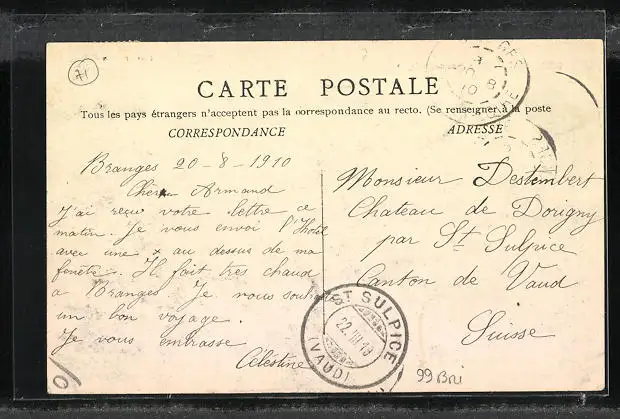 71
CARTE POSTALE
Tous les pays étrangers n'acceptent pas la correspondance au recto. (Se renseigner à la poste
CORRESPONDANCE
ADRESSE
Branges 20-8-1910
Armand
J'ai reçu votre lettre ce
matin. Je vous envoi l'hotel
avec une x au dessus de ma
fenêtre. Il fait très chaud
a Branges Je vous souhaite
un bon voyage.
Je vous embrasse
Célestine
Monsieur Destembert
Chateau de Dorigny
par St Sulpice
Canton de Vaud
Suisse
ST SULPICE
22.VIII.10
(VAUD)
99 Bri